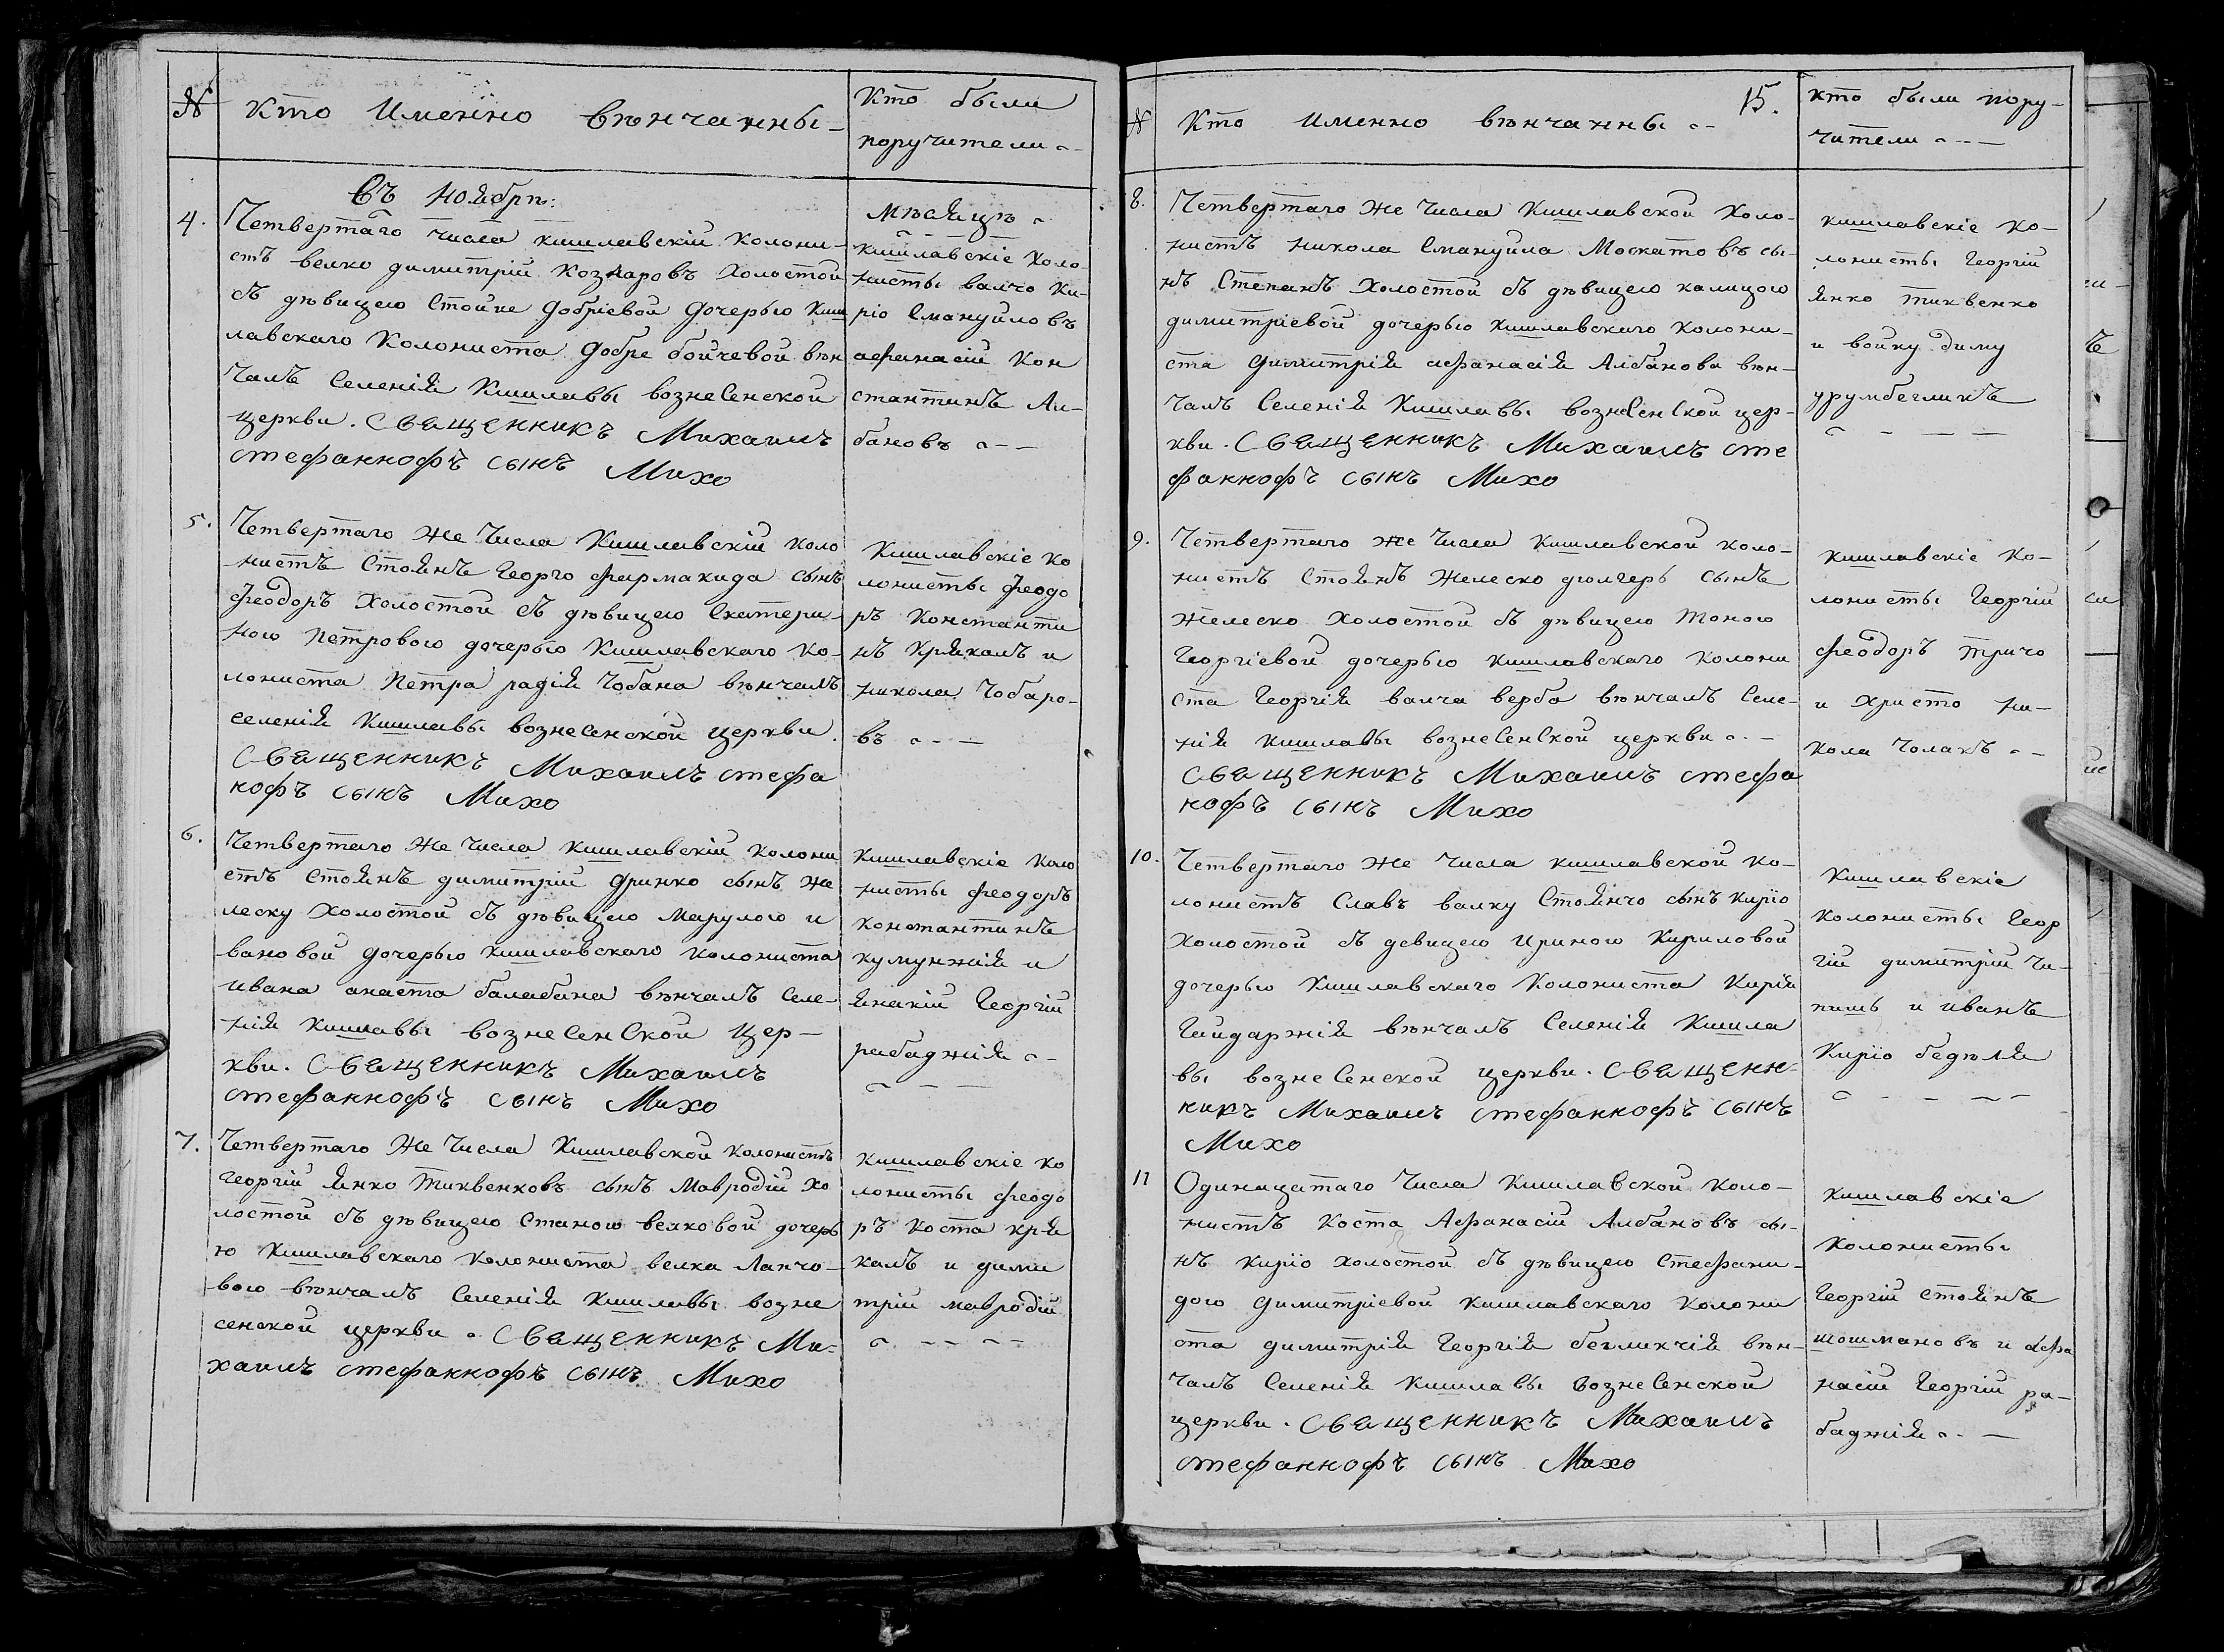 № Кто Именно вѣнчанны
Кто были
поручители
Въ Ноябрѣ:
Мѣсяцѣ
4. Четвертаго числа кишлавскій колони-
стъ велко димитрій Козnаровъ холостой
съ дѣвицею Стойне Добріевой Дочерью Киш
лавскаго Колониста Добре бойчевой вѣн
чалъ Селенія Кишлавы вознеСенской
церкви. Священникъ Михаилъ
стефанкофъ сынъ Михо
кишлавскіе Коло-
нисты валчо Ки-
ріо Емануиловъ
афанасій Кон
стантинъ Ал-
бановъ
5. Четвертаго Же Числа Кишлавскій Коло
нистъ Стоянъ Георго фармакида сынъ
Феодоръ Холостой съ дѣвицею Екатери-
ною Петровою дочерью Кишлавскаго Ко-
лониста Петра радія Чобана вѣнчалъ
селенія Кишлавы вознеСенской церкви.
Священникъ Михаилъ стефа
нофъ сынъ Михо
Кишлавскіе Ко
лонисты Феодо
ръ Константи
нъ Крякалъ и
никола Чобаро-
въ
6. Четвертаго Же Числа Кишлавскій Колони
стъ Стоянъ димитрій Дринко сынъ Же
леску Холостой съ дѣвицею Марулою и
вановой Дочерью Кишлавскаго Колониста
ивана анаста балабана вѣнчалъ Селе-
нія Кишлавы вознеСенСкой Цер-
кви. Священникъ Михаилъ
стефанкофъ сынъ Михо
Кишлавскіе Коло
нисты феодоръ
Константинъ
кумунжія и
Янакій Георгій
рабаджія
7. Четвертаго Же Числа Кишлавской Колонистъ
Георгій Янко Тиквенковъ сынъ Мавродій Хо
лостой съ дѣвицею Станою велковой дочерь
ю Кишлавскаго Колониста велка Лапчо-
вою вѣнчалъ Селенія Кишлавы возне
сенской церкви. Священникъ Ми-
хаилъ стефанкофъ сынъ Михо
кишлавскіе Ко
лонисты феодо
ръ Коста Кря
калъ и дими
трій мавродій
15.
№ Кто именно вѣнчанны
Кто были пору-
чители
8. Четвертаго Же Числа Кишлавской Коло-
нистъ никола Емануйла Москатовъ сы-
нъ Степанъ Холостой съ дѣвицею калицою
димитріевой дочерью Кишлавскаго Колони-
ста Димитрія афанасія Албанова вѣн-
чалъ Селенія Кишлавы вознеСенСкой цер-
кви. Священникъ Михаилъ сте
фанкофъ сынъ Михо
кишлавскіе Ко-
лонисты Георгій
Янко тиквенко
и войку диму
урумбегликъ
9. Четвертаго Же Числа Кишлавской Коло-
нистъ Стоянъ Желеско дюлгеръ сынъ
Желеско Холостой съ дѣвицею Тоною
Георгіевой дочерью Кишлавскаго Колони
ста Георгія валча верба вѣнчалъ Селе-
нія Кишлавы вознеСенСкой церкви
Священникъ Михаилъ стефа
нофъ сынъ Михо
кишлавскіе Ко-
лонисты Георгій
феодоръ тричо
и Христо ни-
кола Чолакъ
10. Четвертаго Же Числа Кишлавской Ко-
лонистъ Славъ валку Стоянчо сынъ Киріо
Холостой съ девицею Ириною Кириловой
дочерью Кишлавскаго Колониста Кирія
Гайдаржія вѣнчалъ Селенія Кишла
вы вознеСенской церкви. Священ-
никъ Михаилъ стефанкофъ сынъ
Михо
Кишлавскіе
колонисты Геор
гій димитрій Чи-
пишь и иванъ
Киріо бедѣля
11 Одинацатаго Числа Кишлавской Коло-
нистъ Коста Афанасій Албановъ сы-
нъ Киріо холостой съ дѣвицею Стефани-
дою Димитріевой Кишлавскаго Колони
ста димитрія Георгія бегликчія вѣн-
чалъ Селенія Кишлавы вознеСенской
церкви. Священникъ Михаилъ
стефанкофъ сынъ Михо
Кишлавскіе
колонисты
Георгій стоянъ
шошмановъ и Афа
насій Георгій ра-
баджія